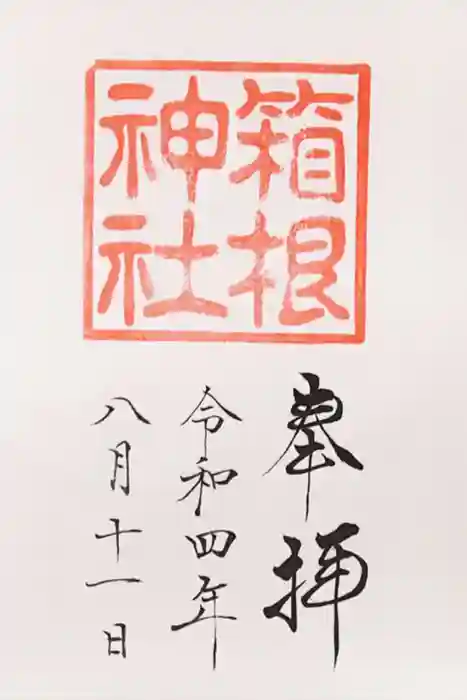 箱根
神社
奉拝
令和四年
八月十一日